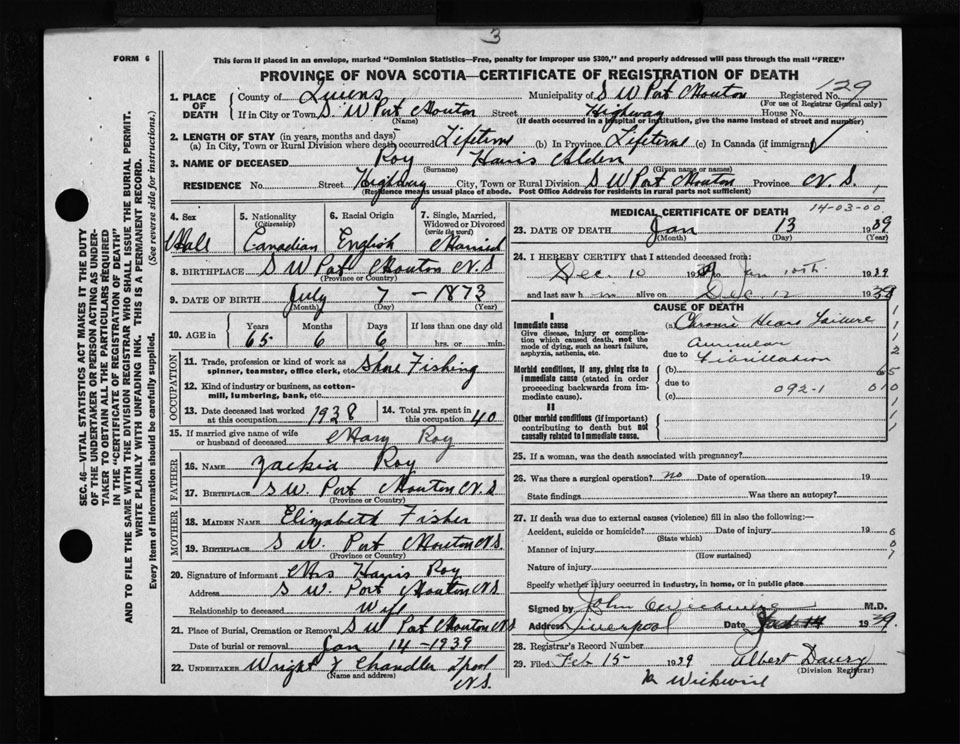 3
FORM 6
This form if placed in an envelope, marked "Dominion Statistics—Free, penalty for improper use $300," and properly addressed will pass through the mail "FREE"
PROVINCE OF NOVA SCOTIA—CERTIFICATE OF REGISTRATION OF DEATH
SEC. 46—VITAL STATISTICS ACT MAKES IT THE DUTY
OF THE UNDERTAKER OR PERSON ACTING AS UNDER-
TAKER TO OBTAIN ALL THE PARTICULARS REQUIRED
IN THE "CERTIFICATE OF REGISTRATION OF DEATH"
AND TO FILE THE SAME WITH THE DIVISION REGISTRAR WHO SHALL ISSUE THE BURIAL PERMIT.
WRITE PLAINLY WITH UNFADING INK. THIS IS A PERMANENT RECORD.
Every item of information should be carefully supplied. (See reverse side for instructions.)
1. PLACE OF DEATH County of Queens Municipality of S W Port Mouton Registered No. 129
(For use of Registrar General only)
If in City or Town S. W Port Mouton Street Highway House No.
(Name) (If death occurred in a hospital or institution, give the name instead of street and number)
2. LENGTH OF STAY (in years, months and days)
(a) In City, Town or Rural Division where death occurred Lifetime (b) In Province Lifetime (c) In Canada (if immigrant)
3. NAME OF DECEASED Roy Harris Alden
(Surname) (Given name or names)
RESIDENCE No. Street Highway City, Town or Rural Division S W Port Mouton Province N. S.
(Residence means usual place of abode. Post Office Address for residents in rural parts not sufficient)
4. Sex Male
5. Nationality (Citizenship) Canadian
6. Racial Origin English
7. Single, Married, Widowed or Divorced (write the word) Married
8. BIRTHPLACE S W Port Mouton N. S
(Province or Country)
9. DATE OF BIRTH July 7 - 1873
(Month) (Day) (Year)
10. AGE in Years 65 Months 6 Days 6 If less than one day old hrs. or min.
OCCUPATION
11. Trade, profession or kind of work as spinner, teamster, office clerk, etc. Shore Fishing
12. Kind of industry or business, as cotton-mill, lumbering, bank, etc.
13. Date deceased last worked at this occupation 1938 14. Total yrs. spent in this occupation 40
15. If married give name of wife or husband of deceased Mary Roy
FATHER
16. NAME Roy
17. BIRTHPLACE S W. Port Mouton N S
(Province or Country)
MOTHER
18. MAIDEN NAME Elizabeth Fisher
19. BIRTHPLACE S W. Port Mouton N S.
(Province or Country)
20. Signature of informant Mrs Harris Roy
Address S W. Port Mouton N S
Relationship to deceased Wife
21. Place of Burial, Cremation or Removal S W Port Mouton N S
Date of burial or removal Jan 14 - 1939
22. UNDERTAKER Wright & Chandler L'pool N. S.
(Name and address)
MEDICAL CERTIFICATE OF DEATH 14-03-00
23. DATE OF DEATH Jan 13 1939
(Month) (Day) (Year)
24. I HEREBY CERTIFY that I attended deceased from:
Dec 10 193 to Jan 10th 1939
and last saw h im alive on Dec 12 1938
CAUSE OF DEATH
I
Immediate cause (a) Chronic Heart Failure
Give disease, injury or complication which caused death, not the mode of dying, such as heart failure, asphyxia, asthenia, etc.
due to Auricular Fibrillation
Morbid conditions, if any, giving rise to immediate cause (stated in order proceeding backwards from immediate cause). (b)
due to
(c) 092-1
1
1
1
2
65
010
II
Other morbid conditions (if important) contributing to death but not causally related to immediate cause.
25. If a woman, was the death associated with pregnancy?
26. Was there a surgical operation? no Date of operation 19
State findings Was there an autopsy?
27. If death was due to external causes (violence) fill in also the following:—
Accident, suicide or homicide? Date of injury 19
(State which)
Manner of injury
(How sustained)
Nature of injury
Specify whether injury occurred in industry, in home, or in public place
Signed by John M.D.
Address Liverpool Date 1939.
28. Registrar's Record Number
29. Filed Feb 15 1939 Albert Daury
(Division Registrar)